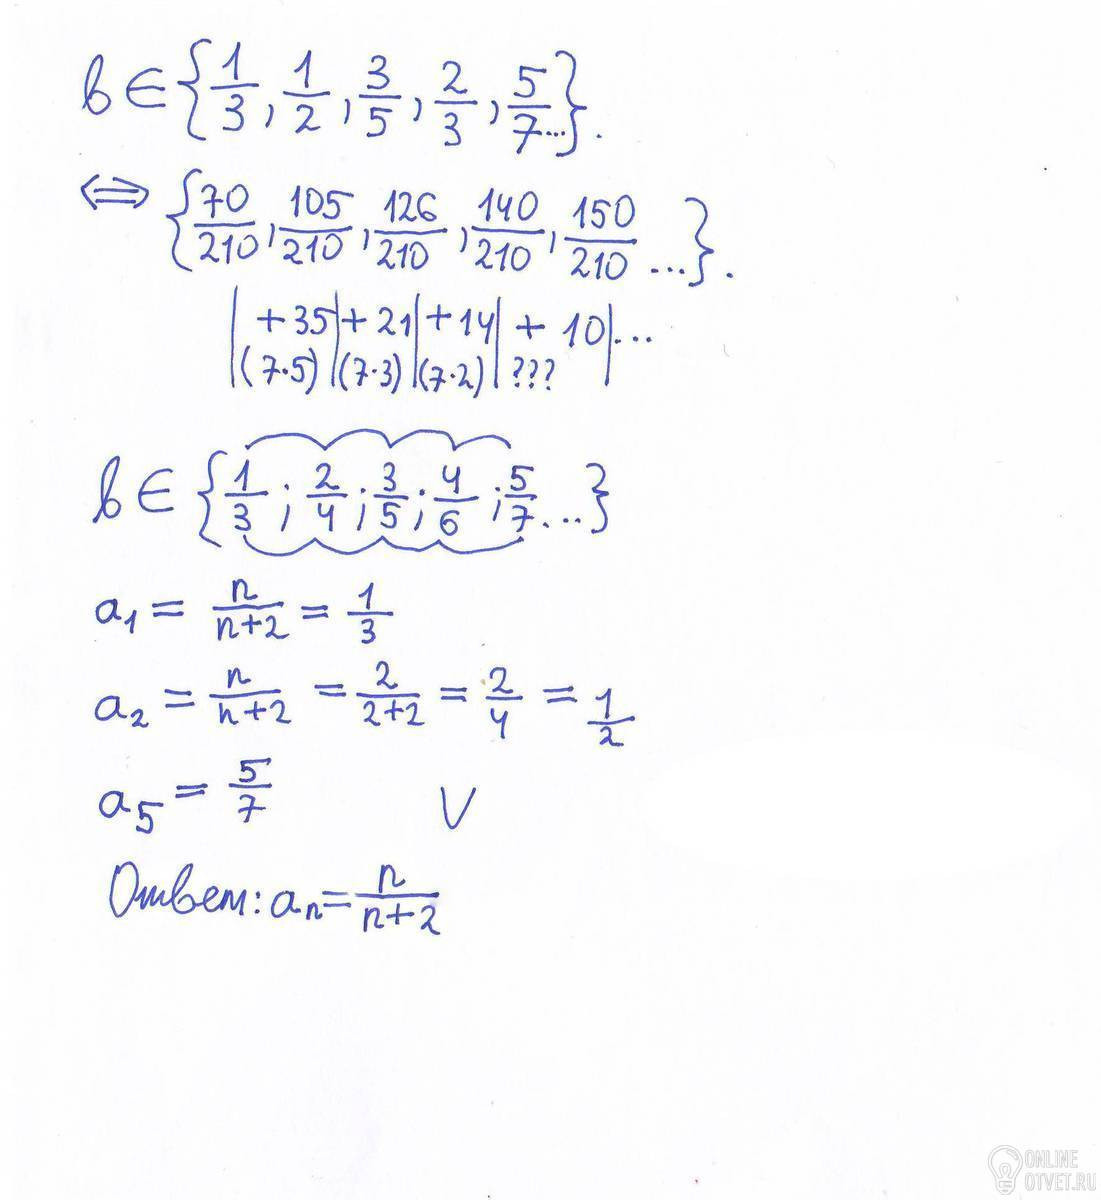 в ∈ {1/3, 1/2, 3/5, 2/3, 5/7...}.
⇔ {70/210, 105/210, 126/210, 140/210, 150/210 ...}.
| +35 | + 21 | + 14 | + 10 | ...
| (7·5) | (7·3) | (7·2) | ??? |
в ∈ {1/3; 2/4; 3/5; 4/6; 5/7 ...}
a₁ = n/(n+2) = 1/3
a₂ = n/(n+2) = 2/(2+2) = 2/4 = 1/2
a₅ = 5/7 V
Ответ: aₙ = n/(n+2)
ONLINE
OTVET.RU